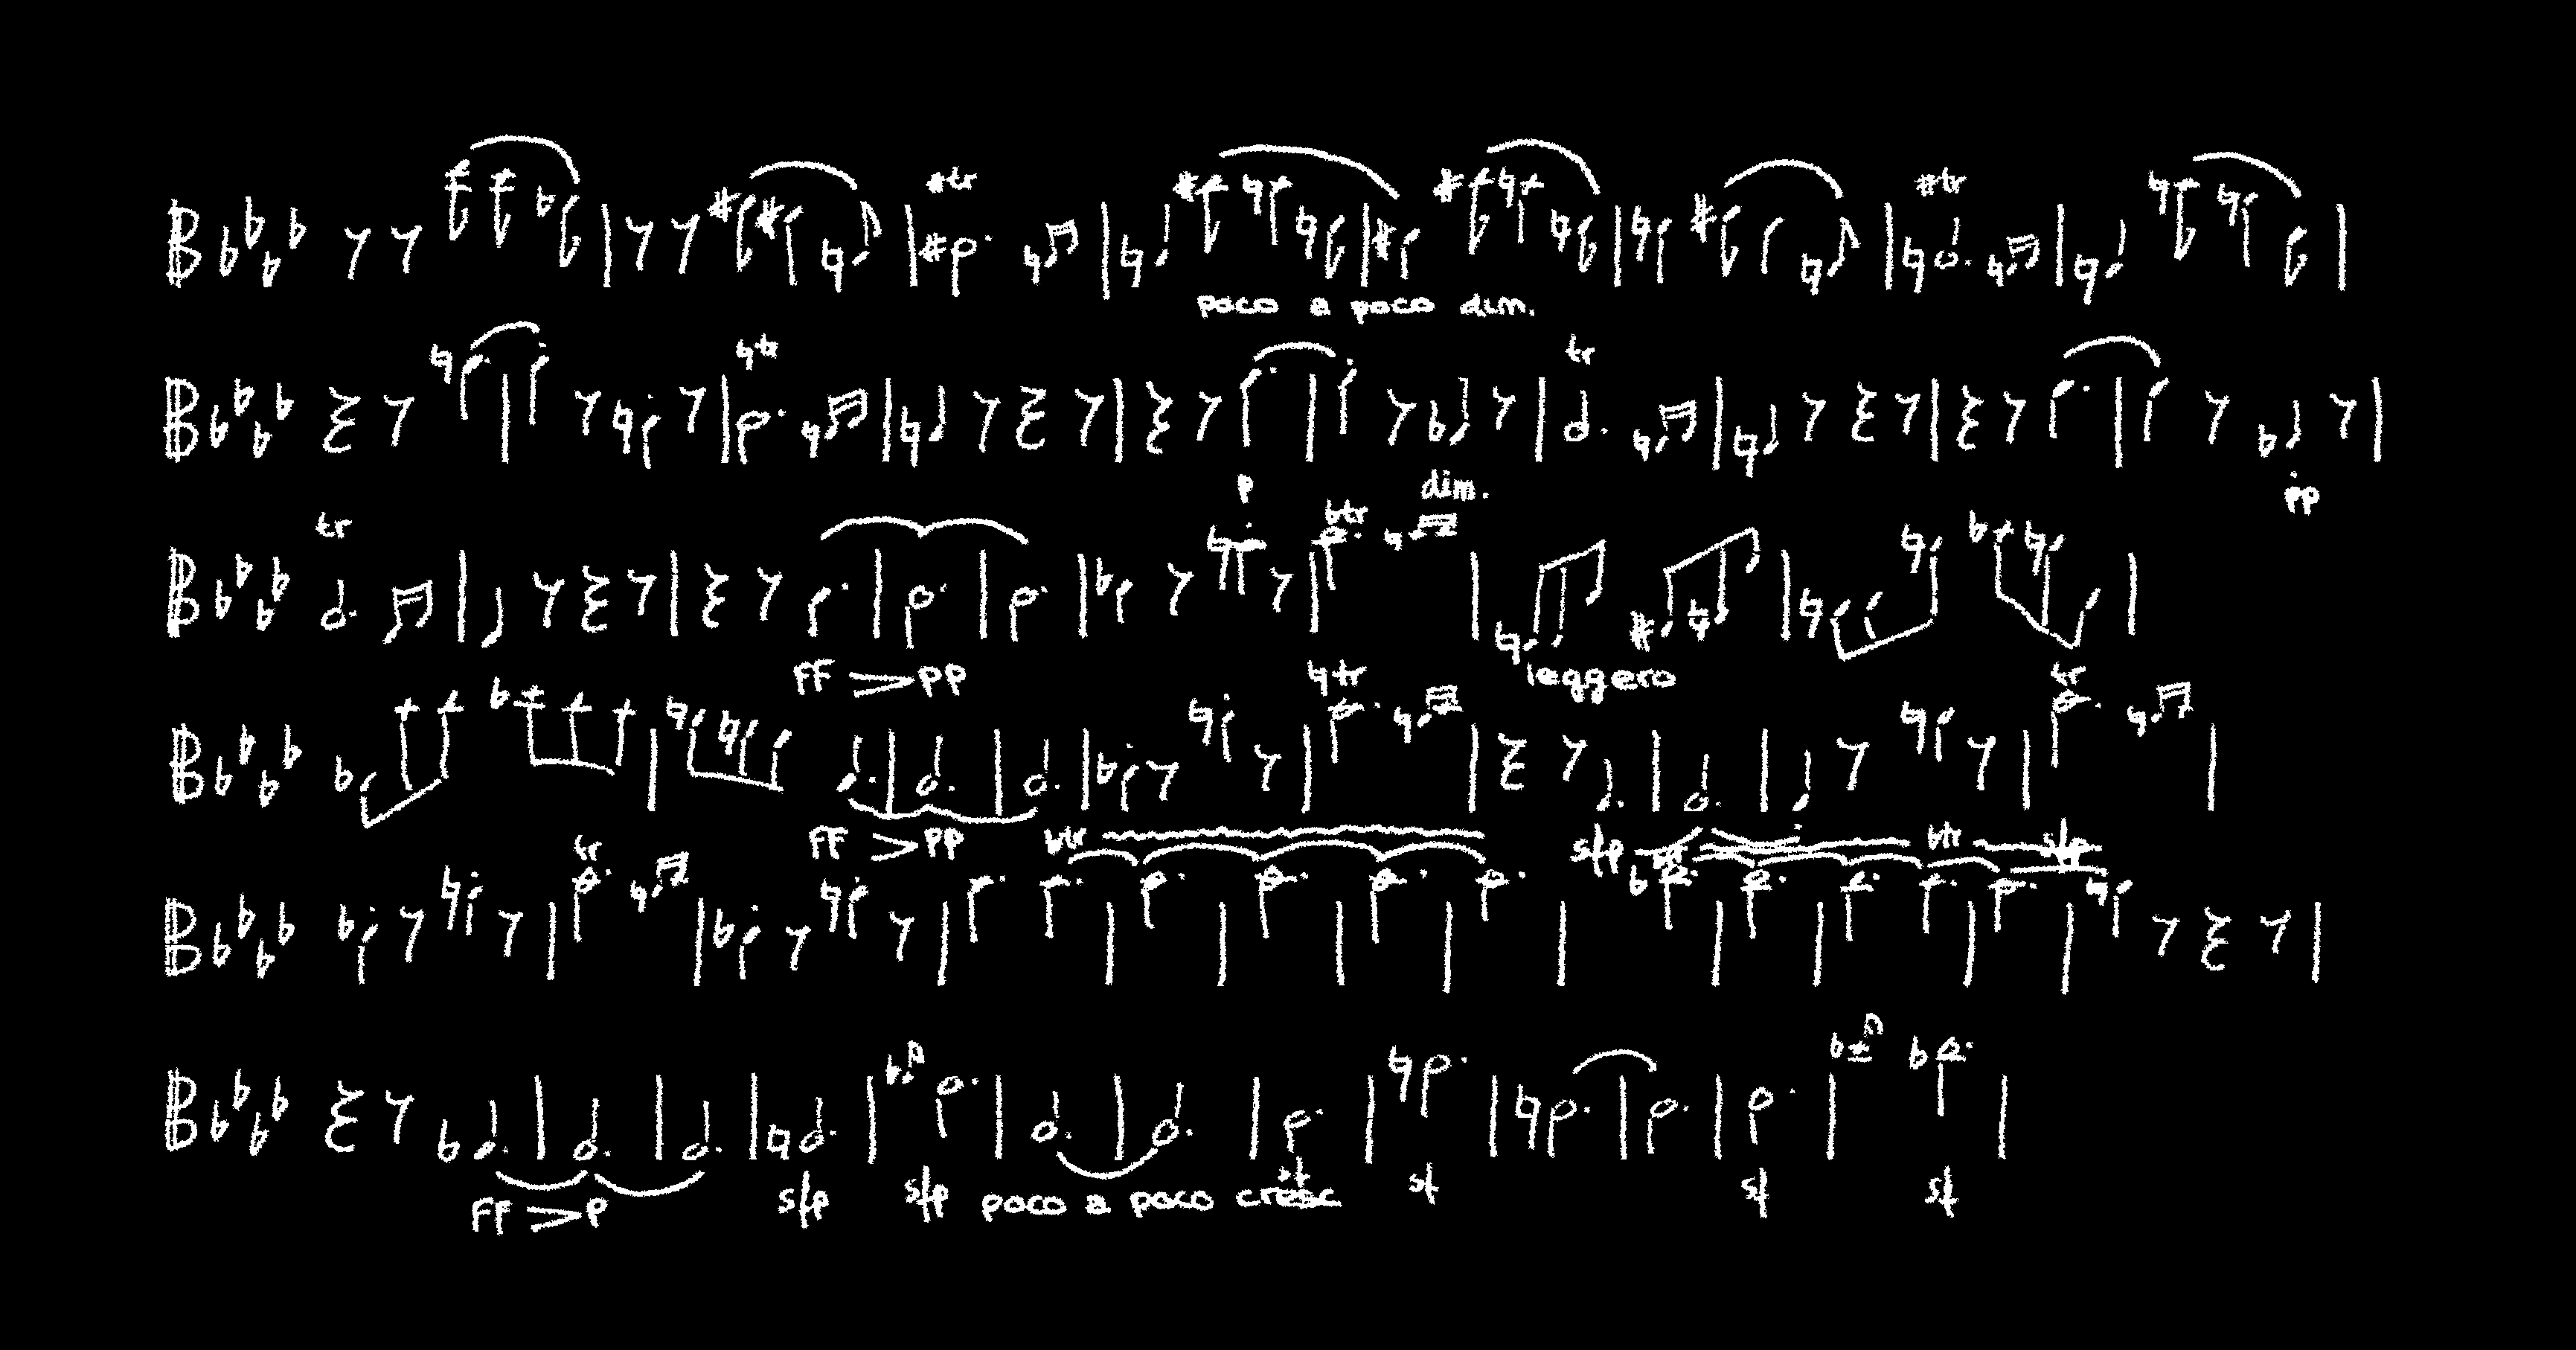 #tr #tr
poco a poco dim.
♮tr tr
p dim. pp
tr ♭tr
FF > PP leggero
♮tr tr
FF > PP sfp sfp
tr ♭tr ♭tr
FF > P sfp sfp poco a poco cresc sf sf sf